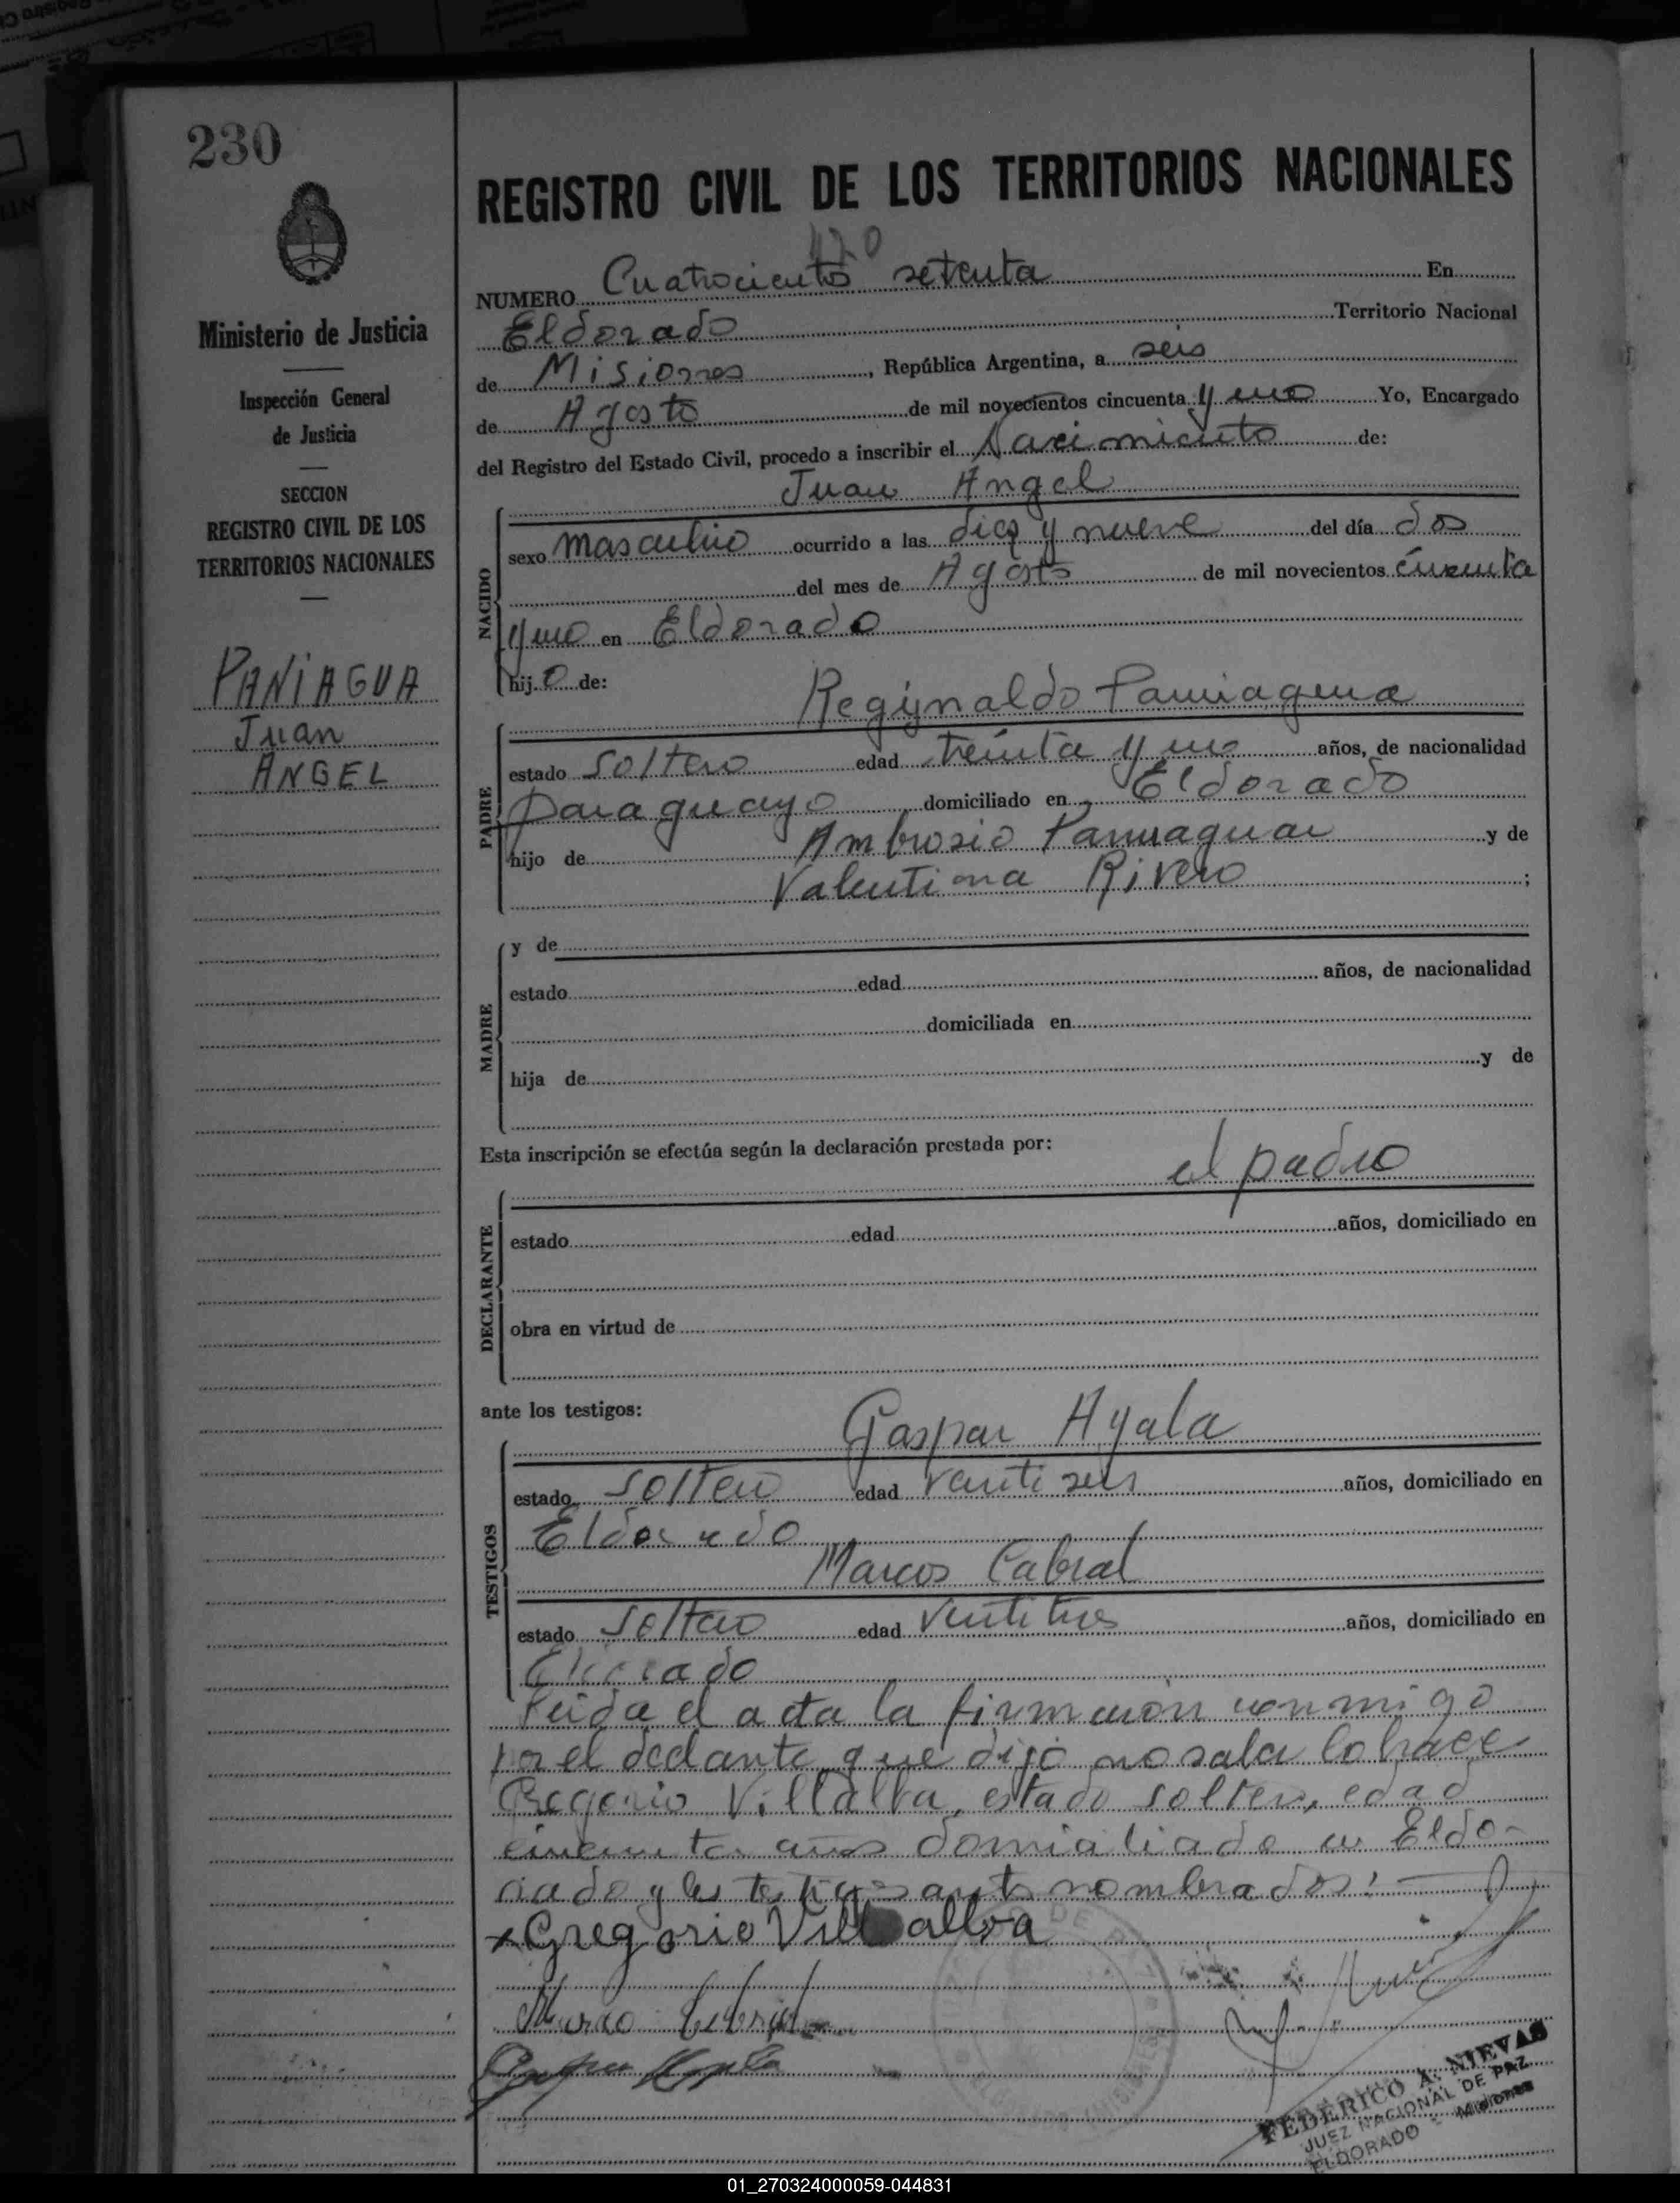 230
REGISTRO CIVIL DE LOS TERRITORIOS NACIONALES
470
NUMERO Cuatrocientos setenta En
Eldorado Territorio Nacional
de Misiones, República Argentina, a seis
de Agosto de mil novecientos cincuenta y uno Yo, Encargado
del Registro del Estado Civil, procedo a inscribir el Nacimiento de:
Juan Angel
NACIDO
sexo masculino ocurrido a las diez y nueve del día dos
del mes de Agosto de mil novecientos cincuenta
y uno en Eldorado
hijo de:
Regijnaldo Paniagua
PADRE
estado soltero edad treinta y uno años, de nacionalidad
paraguayo domiciliado en Eldorado
hijo de Ambrosio Paniagua y de
Valentina Rivero ;
MADRE
y de
estado edad años, de nacionalidad
domiciliada en
hija de y de
Esta inscripción se efectúa según la declaración prestada por:
el padre
DECLARANTE
estado edad años, domiciliado en
obra en virtud de
ante los testigos:
Gaspar Ayala
TESTIGOS
estado soltero edad ventiseis años, domiciliado en
Eldorado
Marcos Cabral
estado soltero edad ventitres años, domiciliado en
Eldorado
Leida el acta la firmaron conmigo
por el declante que dijo no saber lo hace
Gregorio Villalba, estado soltero, edad
cincuenta años domiciliado en Eldo-
rado y los testigos antes nombrados:
x Gregorio Villbalba
Marco Cabral
Gaspar Ayala
FEDERICO A. NIEVAS
JUEZ NACIONAL DE PAZ
ELDORADO - Misiones
Ministerio de Justicia
Inspección General
de Justicia
SECCION
REGISTRO CIVIL DE LOS
TERRITORIOS NACIONALES
PANiAGUA
Juan
ANGEL
01_270324000059-044831